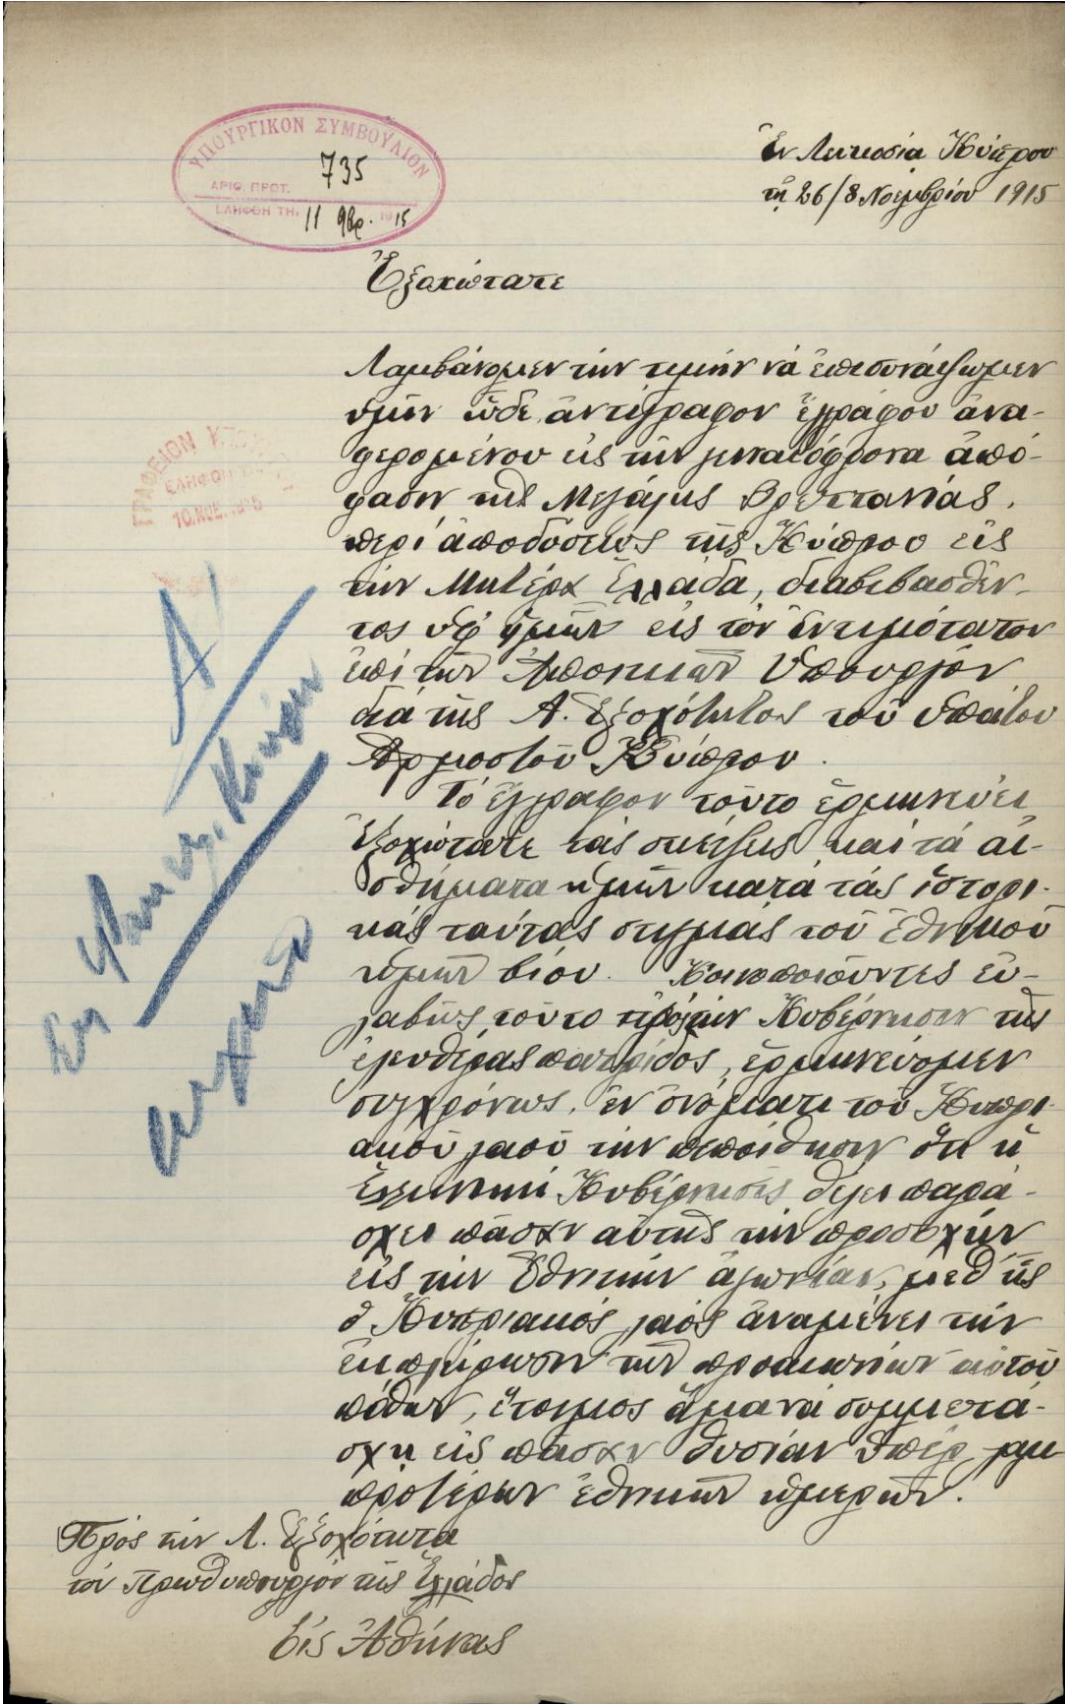 ΥΠΟΥΡΓΙΚΟΝ ΣΥΜΒΟΥΛΙΟΝ
ΑΡΙΘ. ΠΡΩΤ. 735
ΕΛΗΦΘΗ ΤΗ. 11 9βρ. 1915
Ἐν Λευκωσίᾳ Κύπρου
τῇ 26/8 Νοεμβρίου 1915
Ἐξοχώτατε
Λαμβάνομεν τὴν τιμὴν νὰ ἐπισυνάψωμεν
ὑμῖν ὧδε ἀντίγραφον ἐγγράφου ἀνα-
φερομένου εἰς τὴν μεγαλόφρονα ἀπό-
φασιν τῆς Μεγάλης Βρεττανίας.
περὶ ἀποδόσεως τῆς Κύπρου εἰς
τὴν Μητέρα Ἑλλάδα, διαβιβασθέν-
τος ὑφ' ἡμῶν εἰς τὸν ἐντιμότατον
ἐπὶ τῶν Ἀποικιῶν Ὑπουργὸν
διὰ τῆς Α. Ἐξοχότητος τοῦ Ὑπάτου
Ἁρμοστοῦ Κύπρου.
Τὸ ἔγγραφον τοῦτο ἑρμηνεύει
Ἐξοχώτατε τὰς σκέψεις καὶ τὰ αἰ-
σθήματα ἡμῶν κατὰ τὰς ἱστορι-
κὰς ταύτας στιγμὰς τοῦ ἐθνικοῦ
ἡμῶν βίου. Κοινοποιοῦντες εὐ-
λαβῶς τοῦτο πρὸς τὴν Κυβέρνησιν τῆς
ἐλευθέρας πατρίδος, ἑρμηνεύομεν
συγχρόνως, ἐν ὀνόματι τοῦ Κυπρι-
ακοῦ λαοῦ τὴν πεποίθησιν ὅτι ἡ
Ἑλληνικὴ Κυβέρνησις θέλει παρά-
σχει πᾶσαν αὐτῆς τὴν προσοχὴν
εἰς τὴν ἐθνικὴν ἀγωνίαν, μεθ' ἧς
ὁ Κυπριακὸς λαὸς ἀναμένει τὴν
ἐκπλήρωσιν τῶν προαιωνίων αὐτοῦ
πόθων, ἕτοιμος ἅμα νὰ συμμετά-
σχῃ εἰς πᾶσαν θυσίαν ὑπὲρ λαμ
προτέρων ἐθνικῶν ἡμερῶν.
Πρὸς τὴν Α. Ἐξοχότητα
τὸν Πρωθυπουργὸν τῆς Ἑλλάδος
Εἰς Ἀθήνας